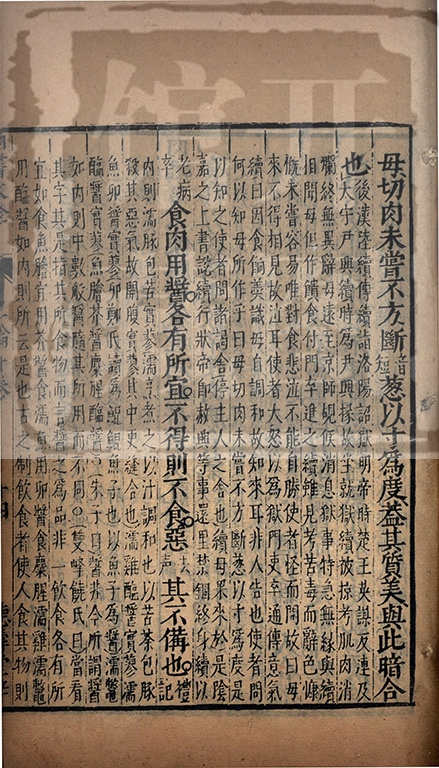 母切肉未嘗不方斷音短葱以寸為度蓋其質美與此暗合
也後漢陸續傳續詣洛陽詔獄明帝時楚王英謀反連及
太守尹興續時為尹興掾故坐就獄續被掠考肌肉消
爛終無異辭母遠至京師覘候消息獄事特急無緣與續
相聞母但作饋食付門卒進之續雖見考苦毒而辭色慷
慨未嘗容易唯對食悲泣不能自勝使者怪而問故曰母
來不得相見故泣耳使者大怒以為獄門吏卒通傳意氣
續曰因食餉羹識母自調和故知來耳非人告也使者問
何以知母所作乎曰母切肉未嘗不方斷葱以寸為度是
以知之使者問諸謁舍停主人之舍也續母果來於是陰
嘉之上書說續行狀帝即赦興等事還里禁錮終身續以
老病卒食肉用醬各有所宜不得則不食惡去聲其不備也禮記
內則濡豚包苦實蓼濡烹煮之以汁調和也以苦茶包豚
殺其惡氣故開腹實蓼其中更縫合也濡雞醢醬實蓼濡
魚卵醬實蓼卵鄭氏讀為鯤鯤魚子也以魚子為醬濡鱉
醢醬實蓼魚膾芥醬麋腥醢醬○朱子曰醬非今所謂醬
如內則中數般醬隨其所用而不同○雙峰饒氏曰當看
其字其是指其所食物而言醬之為品非一飲食各有所
宜如食魚膾宜用芥醬食濡魚用卵醬食麋腥濡雞濡鱉
用醢醬如內則所云是也古之制飲食者使人食其物則